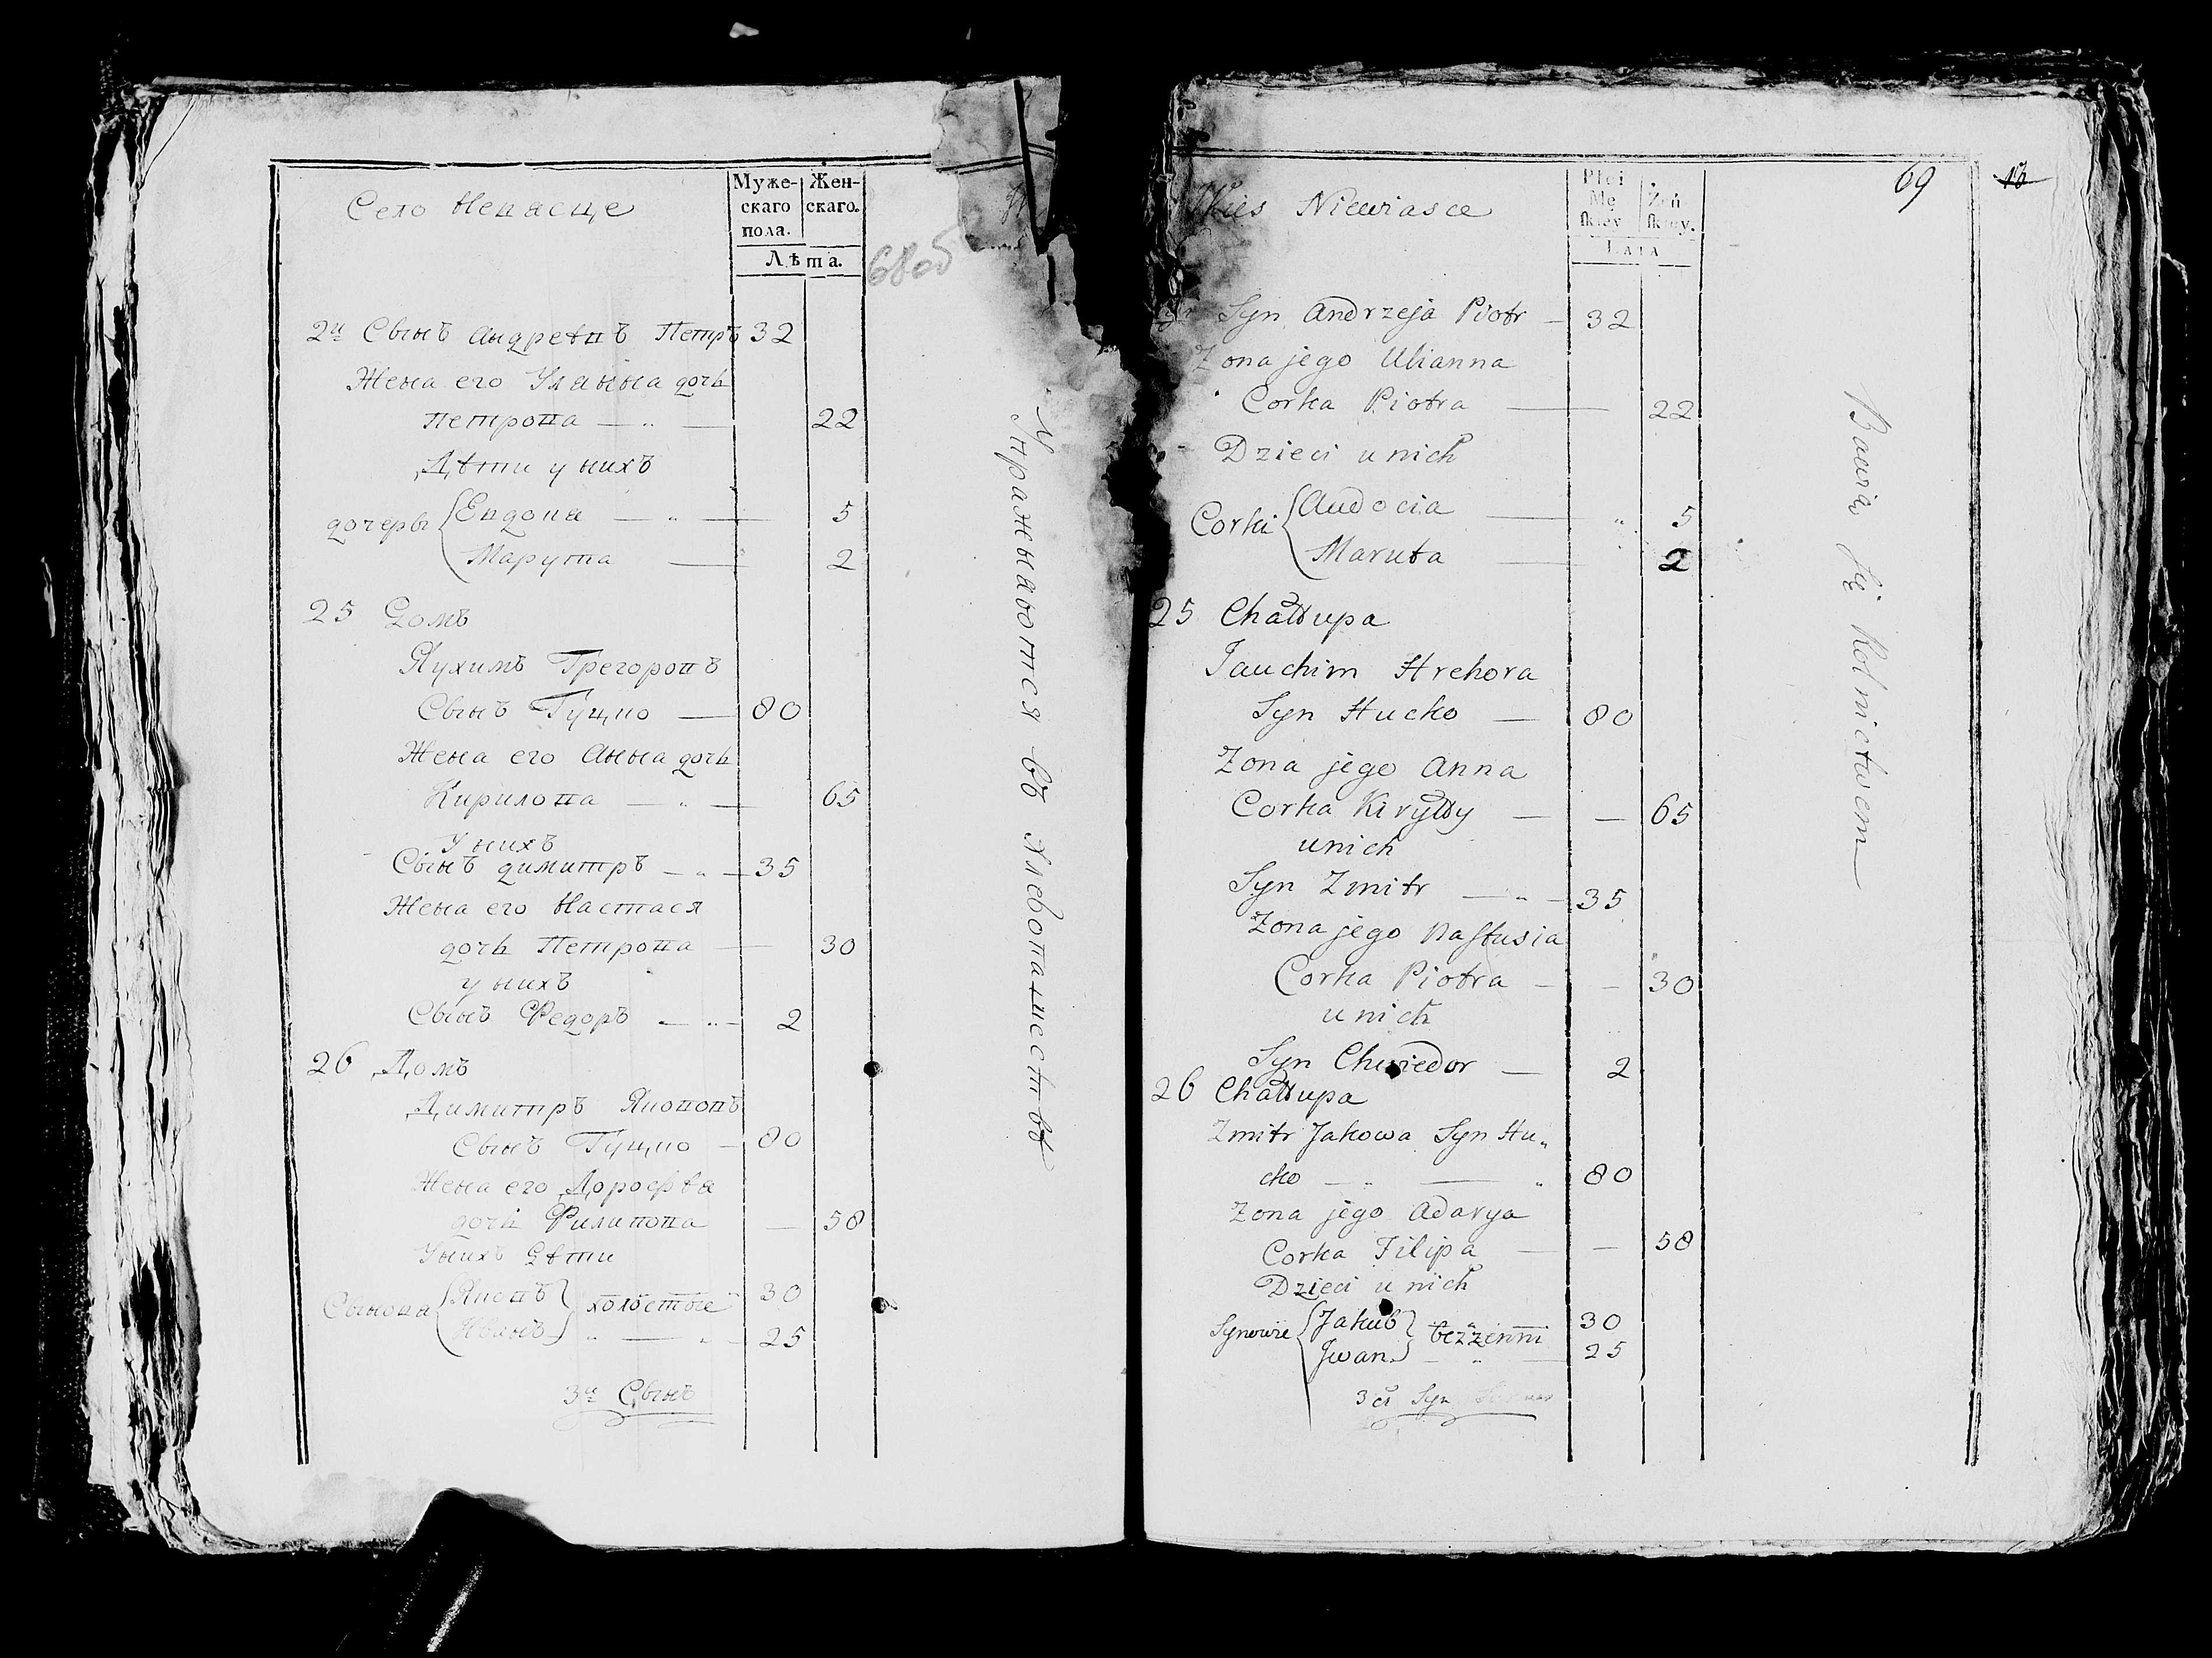 Село Невясце
Муже-
скаго
пола.
Жен-
скаго.
Лѣта.
68об
2й Сынъ Андреевъ Петръ 32
Жена его Улянна дочь
Петрова — 22
Дѣти у нихъ
дочеры
Евдоця — 5
Марута — 2
25 Домъ
Яухимъ Грегоровъ
Сынъ Гуцко — 80
Жена его Анна дочь
Кирилова — 65
У нихъ
Сынъ Димитръ — 35
Жена его Настася
дочь Петрова — 30
у нихъ
Сынъ Федоръ — 2
26 Домъ
Димитръ Якововъ
Сынъ Гуцко — 80
Жена его Дорофѣа
дочь Филипова — 58
У нихъ Дѣти
Сынова
Яковъ 30
Иванъ — 25
холостые
3й Сынъ
Упражняются въ Хлебопашествѣ
69
Wieś Niewiasce
Płci
Mę
skiey
Żeń
skiey.
LATA
Syn Andrzeja Piotr — 32
Zona jego Ulianna
Corka Piotra — 22
Dzieci u nich
Corki
Audocia — 5
Maruta — 2
25 Chałłupa
Jauchim Hrehora
Syn Hucko — 80
Zona jego Anna
Corka Kiryłły — — 65
unich
Syn Zmitr — 35
Zona jego Nastusia
Corka Piotra — — 30
u nich
Syn Chwiedor — 2
26 Chałłupa
Zmitr Jakowa Syn Hu„
cko — 80
Zona jego Adarya
Corka Filipa — — 58
Dzieci u nich
Synowie
Jakub 30
Jwan — 25
bezzenni
3ci Syn
Bawią się Rolnictwem